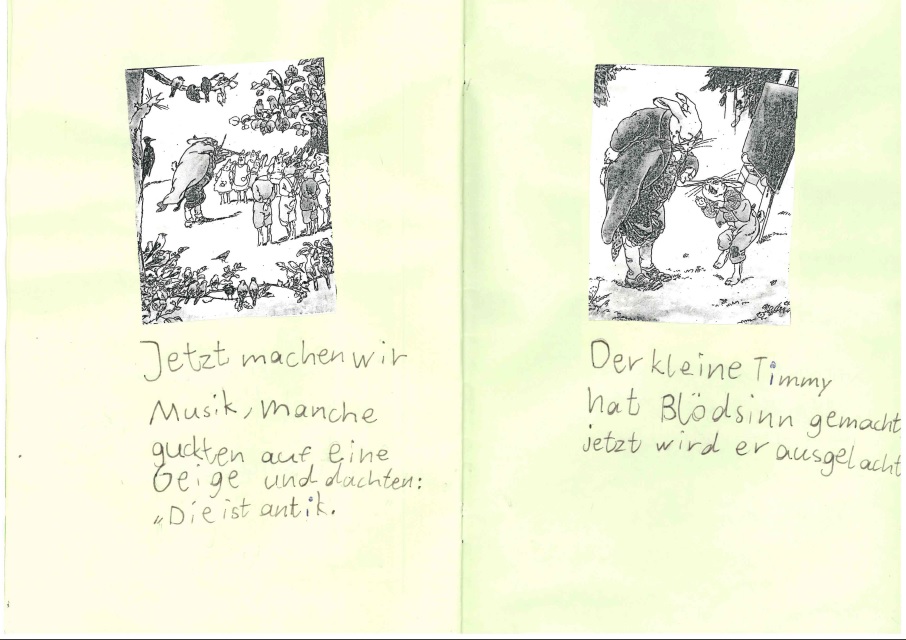 Jetzt machen wir
Musik, manche
guckten auf eine
Geige und dachten:
„Die ist antik.
Der kleine Timmy
hat Blödsinn gemacht
jetzt wird er ausgelacht